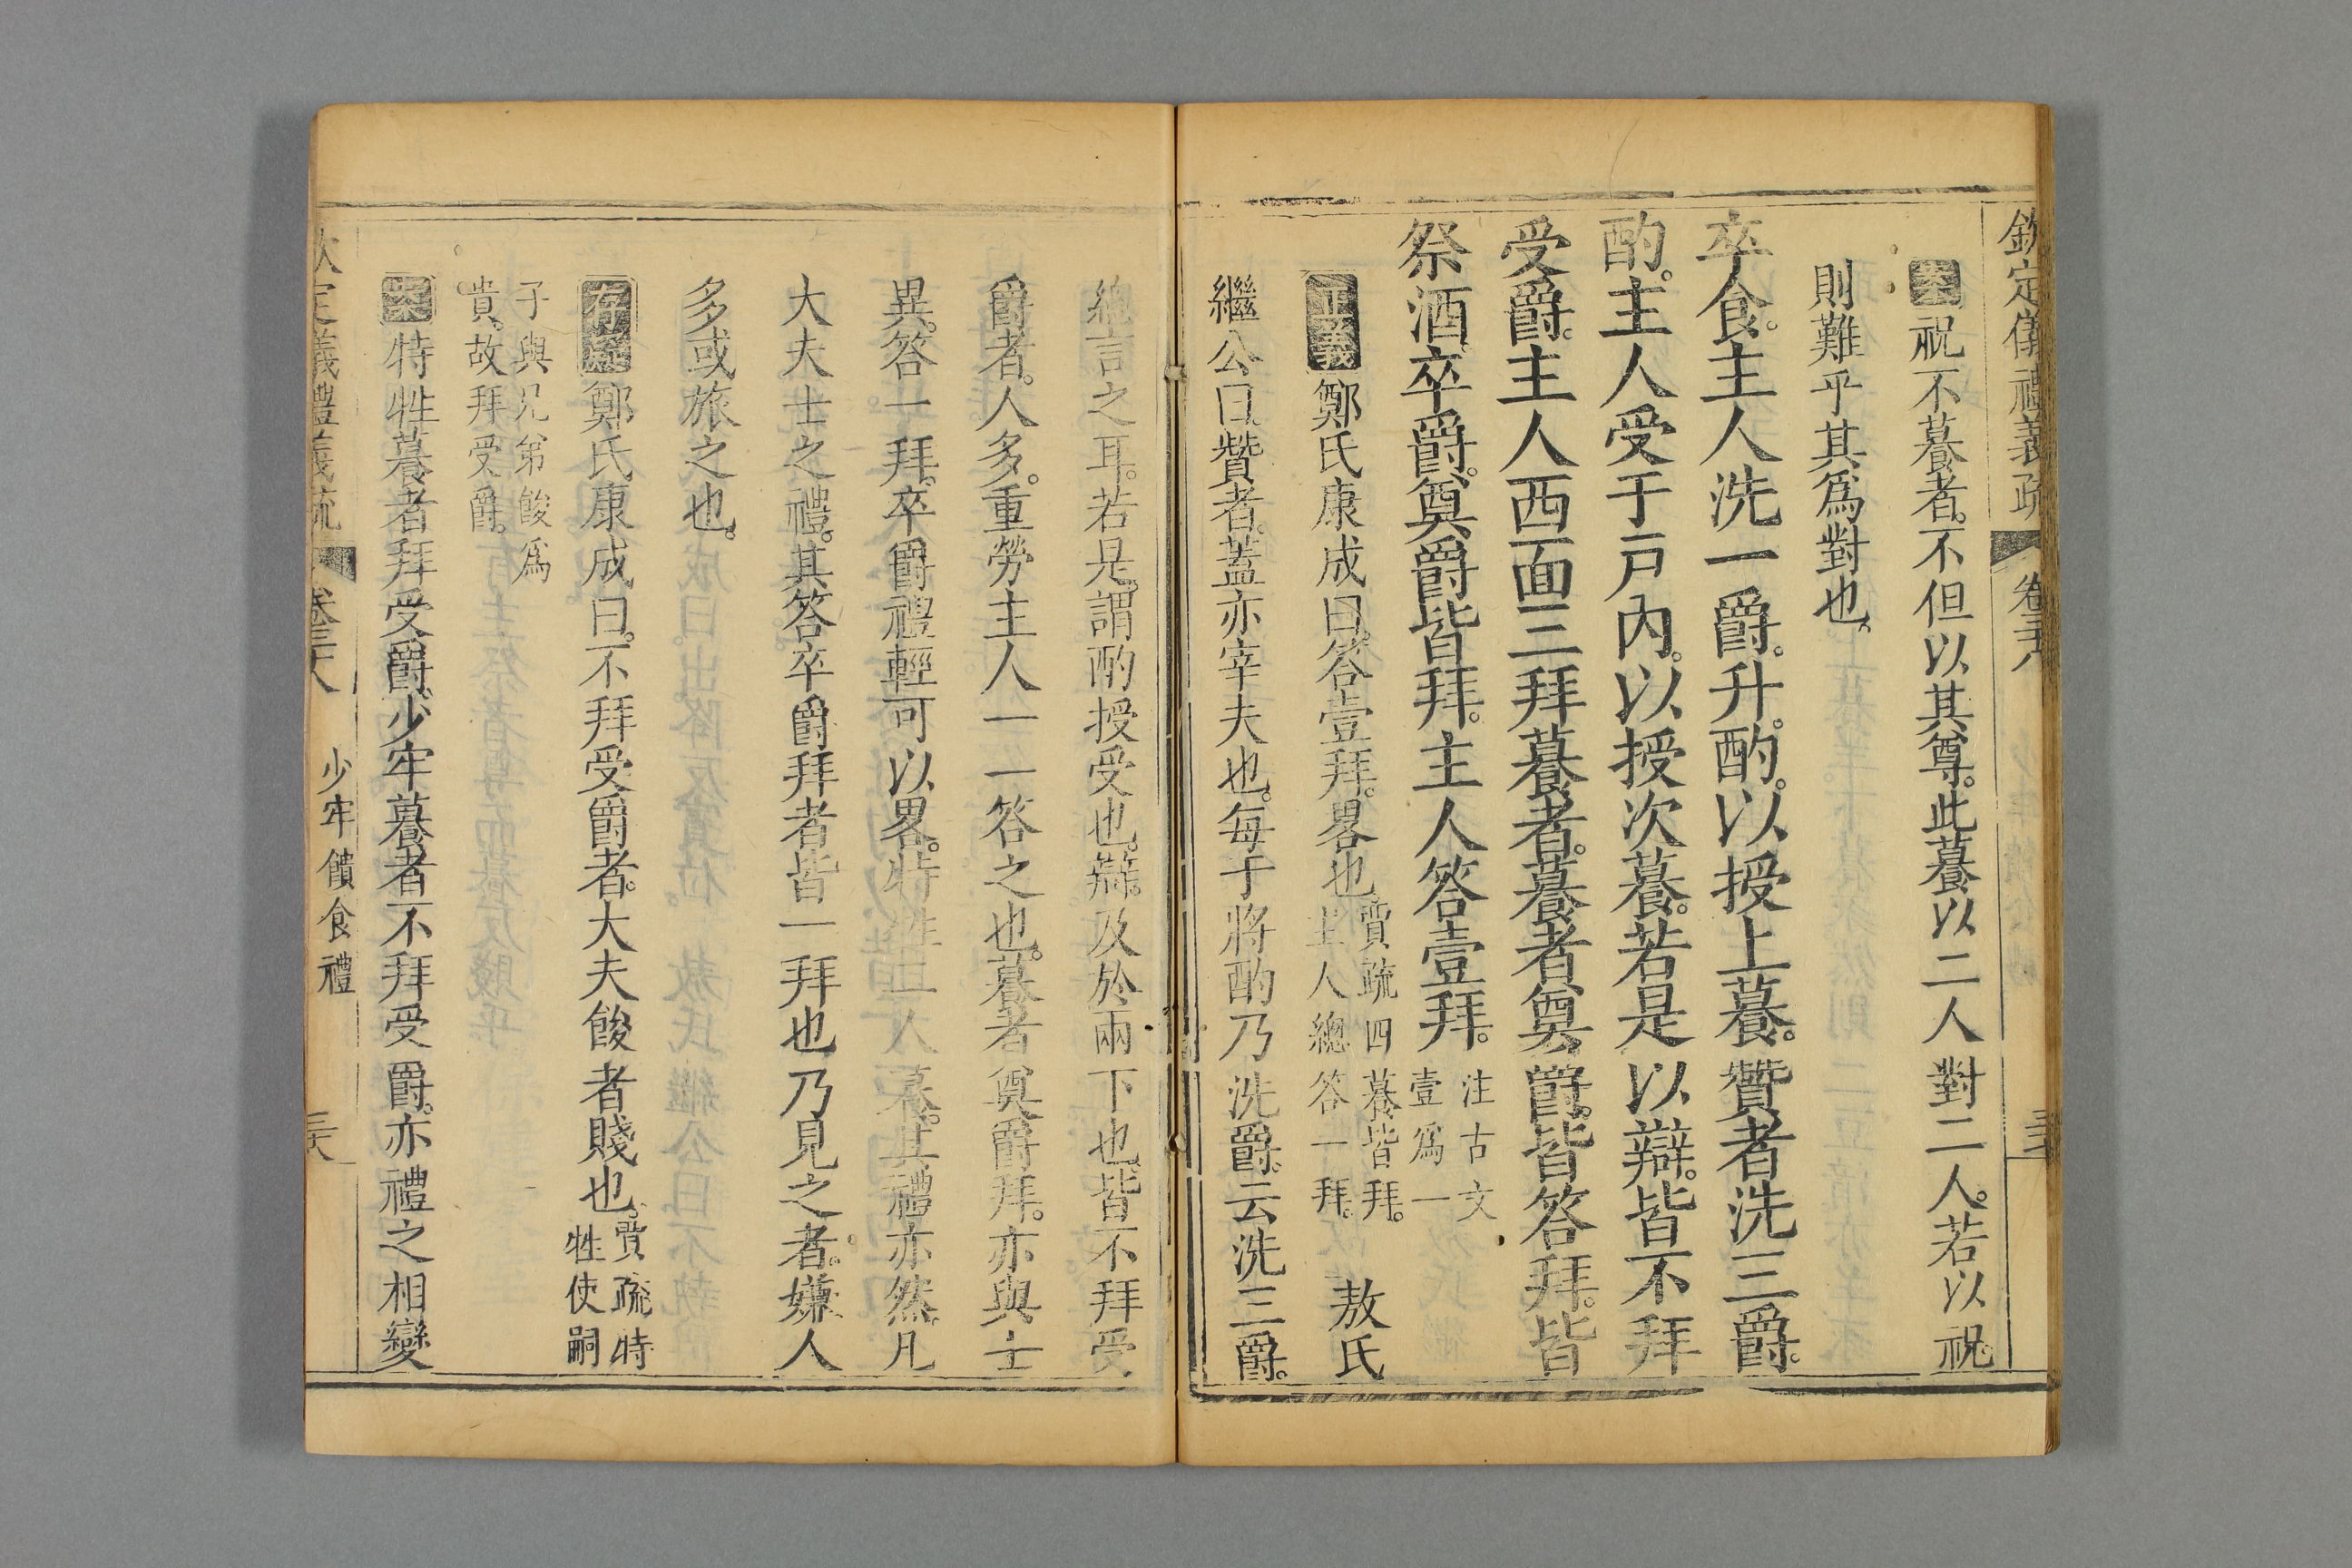 欽定儀禮義疏 卷三十八
案祝不䔳者不但以其尊此䔳以二人對二人若以祝
則難乎其爲對也
卒食主人洗一爵升酌以授上䔳贊者洗三爵
酌主人受于戸內以授次䔳若是以辯皆不拜
受爵主人西面三拜䔳者䔳者奠爵皆答拜皆
祭酒卒爵奠爵皆拜主人答壹拜 注古文
壹爲一
正義鄭氏康成曰答壹拜畧也 賈疏四䔳皆拜
主人總答一拜 敖氏
繼公曰贊者蓋亦宰夫也每于將酌乃洗爵云洗三爵
總言之耳若是謂酌授受也辯及於兩下也皆不拜受
爵者人多重勞主人一一答之也䔳者奠爵拜亦與士
異答一拜卒爵禮輕可以畧特牲二人䔳其禮亦然凡
大夫士之禮其答卒爵拜者皆一拜也乃見之者嫌人
多或旅之也
存疑鄭氏康成曰不拜受爵者大夫餕者賤也 賈疏特
牲使嗣
子與兄弟餕爲
貴故拜受爵
案特牲䔳者拜受爵少牢䔳者不拜受爵亦禮之相變
欽定儀禮義疏 卷三十八 少牢饋食禮 三十六